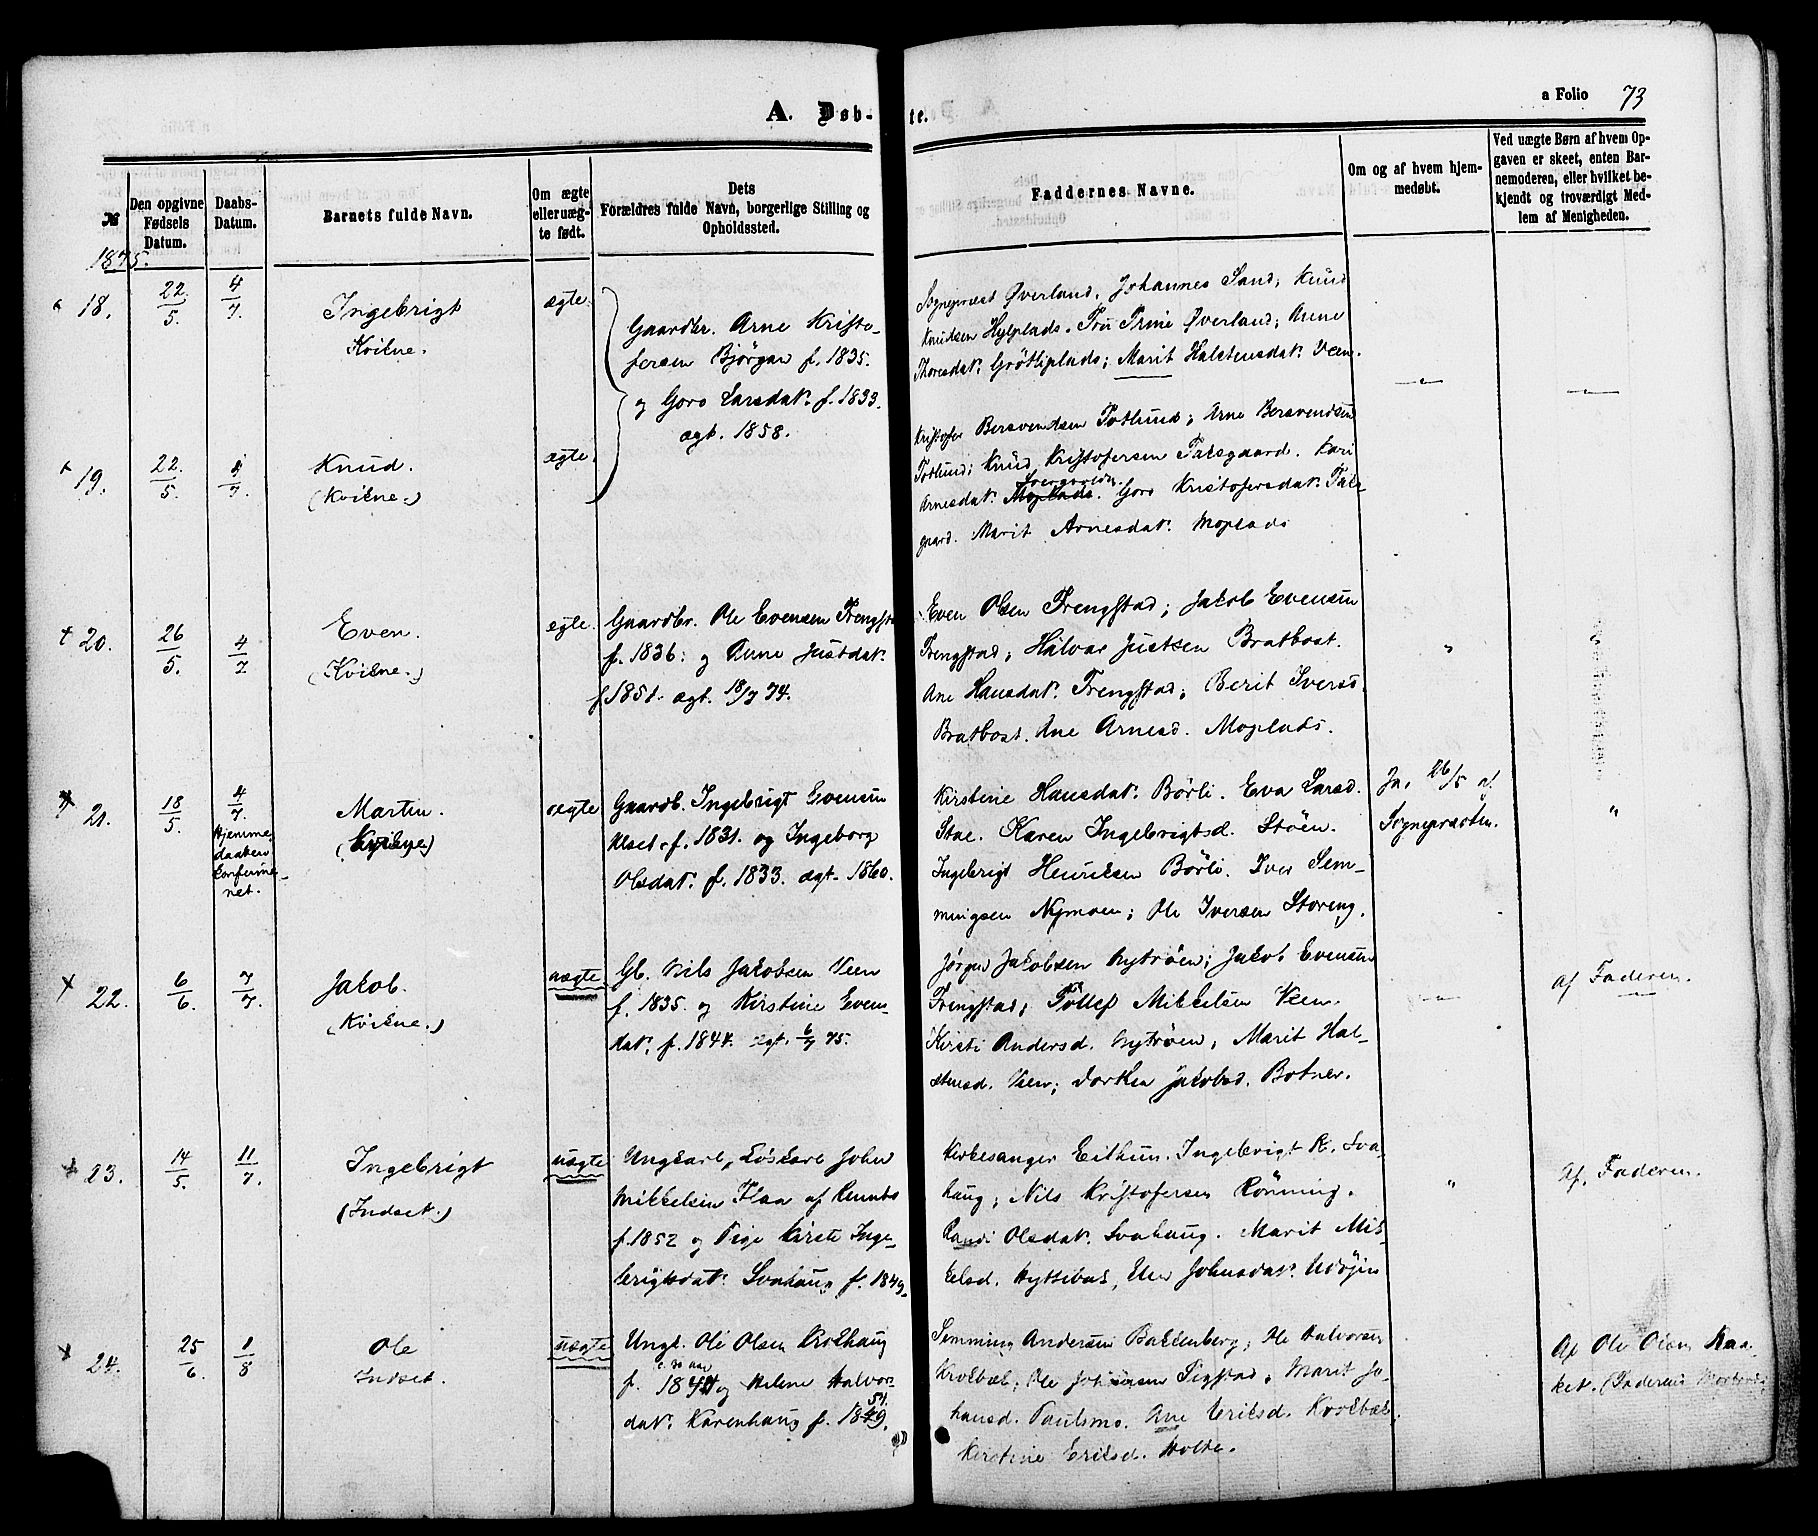 A. Døb-
te.
a Folio 73
№
Den opgivne
Fødsels
Datum.
Daabs-
Datum.
Barnets fulde Navn.
Om ægte
eller uæg-
te født.
Dets
Forældres fulde Navn, borgerlige Stilling og
Opholdssted.
Faddernes Navne.
Om og af hvem hjem-
medøbt.
Ved uægte Børn af hvem Op-
gaven er skeet, enten Bar-
nemoderen, eller hvilket be-
kjendt og troværdigt Med-
lem af Menigheden.
1875.
18.
22/5.
4/7.
Ingebrigt
Kvikne.
ægte.
Gaardbr. Arne Kristo-
fersen Bjørgan f. 1835.
og Goro Larsdat. f. 1833.
ægt. 1858.
Sognepræst Øverland, Johannes Sand, Knud
Knudsen Hylplads. Fru Trine Øverland; Anne
Thoresdat. Grötliplads; Marit Halstensdat. Veen.
19.
22/5.
4/7.
Knud.
(Kvikne.)
ægte.
Kristofer Bersvendsen Totlund; Arne Bersvendsen
Totlund; Knud Kristofersen Talsgaard. Kari
Arnesdat. Moplads. Goro Kristofersdat. Tals-
gaard. Marit Arnesdat. Moplads
20.
26/5.
4/7
Even.
(Kvikne.)
ægte.
Gaardbr. Ole Evensen Frengst
f. 1836: og Anne Justdat.
f 1851. ægt. 18/7 74.
Even Olsen Frengstad; Jakob Evensen
Frengstad; Halvor Justsen Bratbost.
Ane Hansdat. Frengstad; Berit Iversd.
Bratbost. Ane Arnesd. Moplads.
"
21.
18/5.
4/7.
Hjemme-
daaben
konfirme-
net.
Martin.
(Kvikne)
ægte
Gaardb. Ingebrigt Evensen
Ulset. f. 1831. og Ingeborg
Olsdat. f. 1833. ægt. 1860.
Kirstine Hansdat. Börli. Eva Larsd.
Stae. Karen Ingebrigtsd. Stöen.
Ingebrigt Henriksen Börli. Iver Sem-
mingsen Nymoen; Ole Iversen Storeng.
Ja, 26/5 af
Sognepræsten.
"
22.
6/6
7/7.
Jakob.
(Kvikne.)
uægte
Gb. Nils Jakobsen Veen
f. 1835. og Kirstine Evens-
dat. f. 1844. ægt. 6/7 75.
Jørgen Jakobsen Nytröen; Jakob Evensen
Frengstad; Tollef Mikkelsen Veen.
Kirsti Andersd. Nytröen; Marit Hal-
stensd. Veen; Dorthea Jakobsd. Botner.
af Faderen.
23.
14/5.
11/7.
Ingebrigt
(Indset.)
uægte
Ungkarl, Löskarl John
Mikkelsen Flaa af Rennebo
f. 1852 og Pige Kirsti Inge-
brigtsdat. Svahaug f. 1849.
Kirkesanger Eithun. Ingebrigt R. Sva-
haug; Nils Kristofersen Rönning.
Randi Olsdat. Svahaug. Marit Mik-
kelsd. Hyttebak, Elen Johnsdat. Udöjen
"
Af Faderen.
24.
25/6.
1/8
Ole
Indset.
uægte
Ungk. Ole Olsen Krokhaug
f. 1844 og Helene Halvors-
dat. Karenhaug f. 1849.
Semming Andersen Bakkenberg; Ole Halvorsen
Krolbæk; Ole Johansen Sigstad, Marit Jo-
hansd. Paulsmo. Ane Eriksd. Krokbæk
Kirstine Eriksd. Holte.
Af Ole Olsen Raa-
ket. (Faderens